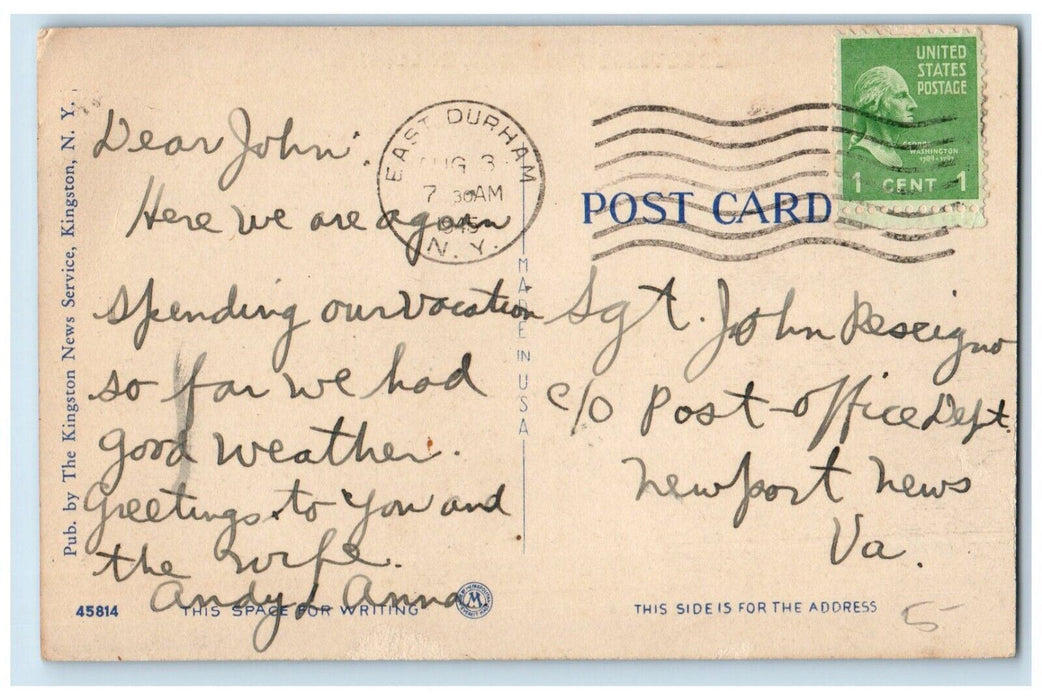 Pub. by The Kingston News Service, Kingston, N. Y.
Dear John:
Here we are again
spending our vacation
so far we had
good weather.
Greetings to you and
the wife.
Andy & Anna
45814
THIS SPACE FOR WRITING
M
EAST DURHAM
AUG 3
7 30 AM
1945
N. Y.
MADE IN USA
UNITED
STATES
POSTAGE
GEORGE
WASHINGTON
1789-1797
1 CENT 1
POST CARD
Sgt. John Rescigno
c/o Post-office Dept.
Newport News
Va.
THIS SIDE IS FOR THE ADDRESS
5